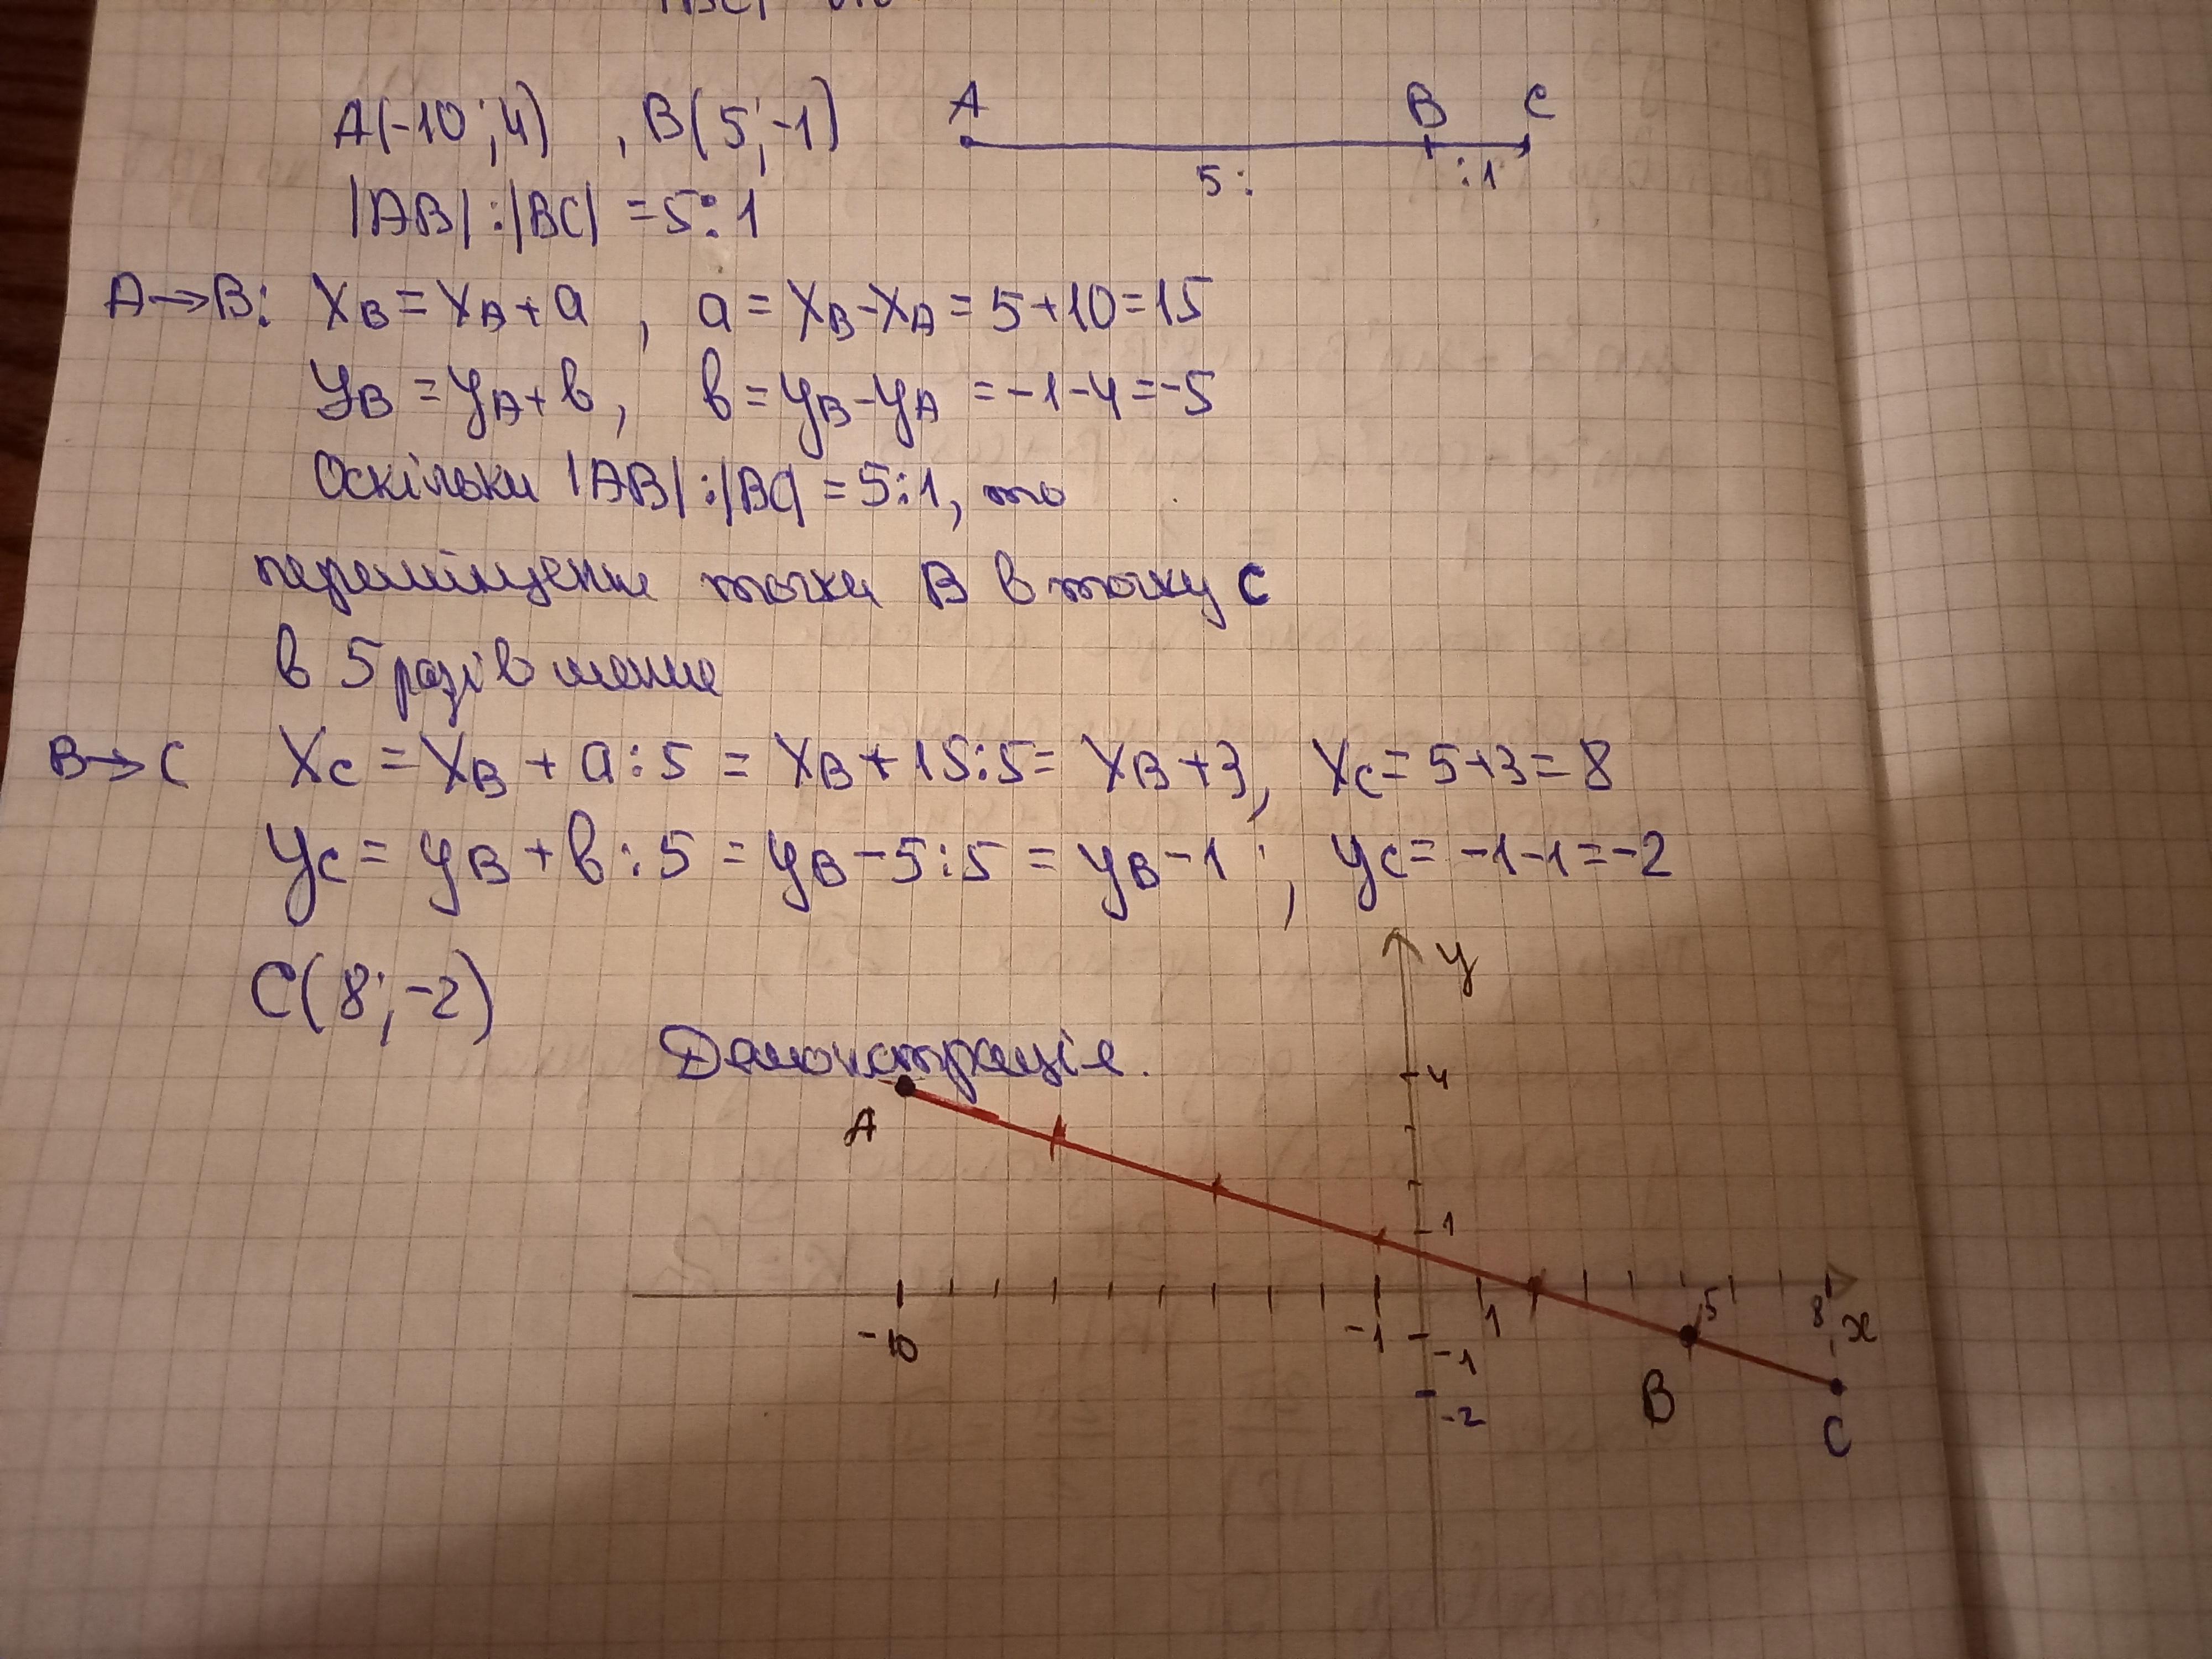 A(-10;4) , B(5;-1)
A B C
5: :1
|AB|:|BC| =5:1
A→B: XB=XA+a , a=XB-XA=5+10=15
yB=yA+b, b=yB-yA=-1-4=-5
Оскільки |AB|:|BC|=5:1, то
переміщення точки B в точку C
в 5 разів менше
B→C XC=XB+a:5=XB+15:5=XB+3, XC=5+3=8
yC=yB+b:5=yB-5:5=yB-1 ; yC=-1-1=-2
C(8;-2)
y
Демонстрація.
4
A
1
-10 -1 1 5 8 x
-1
B -2
C